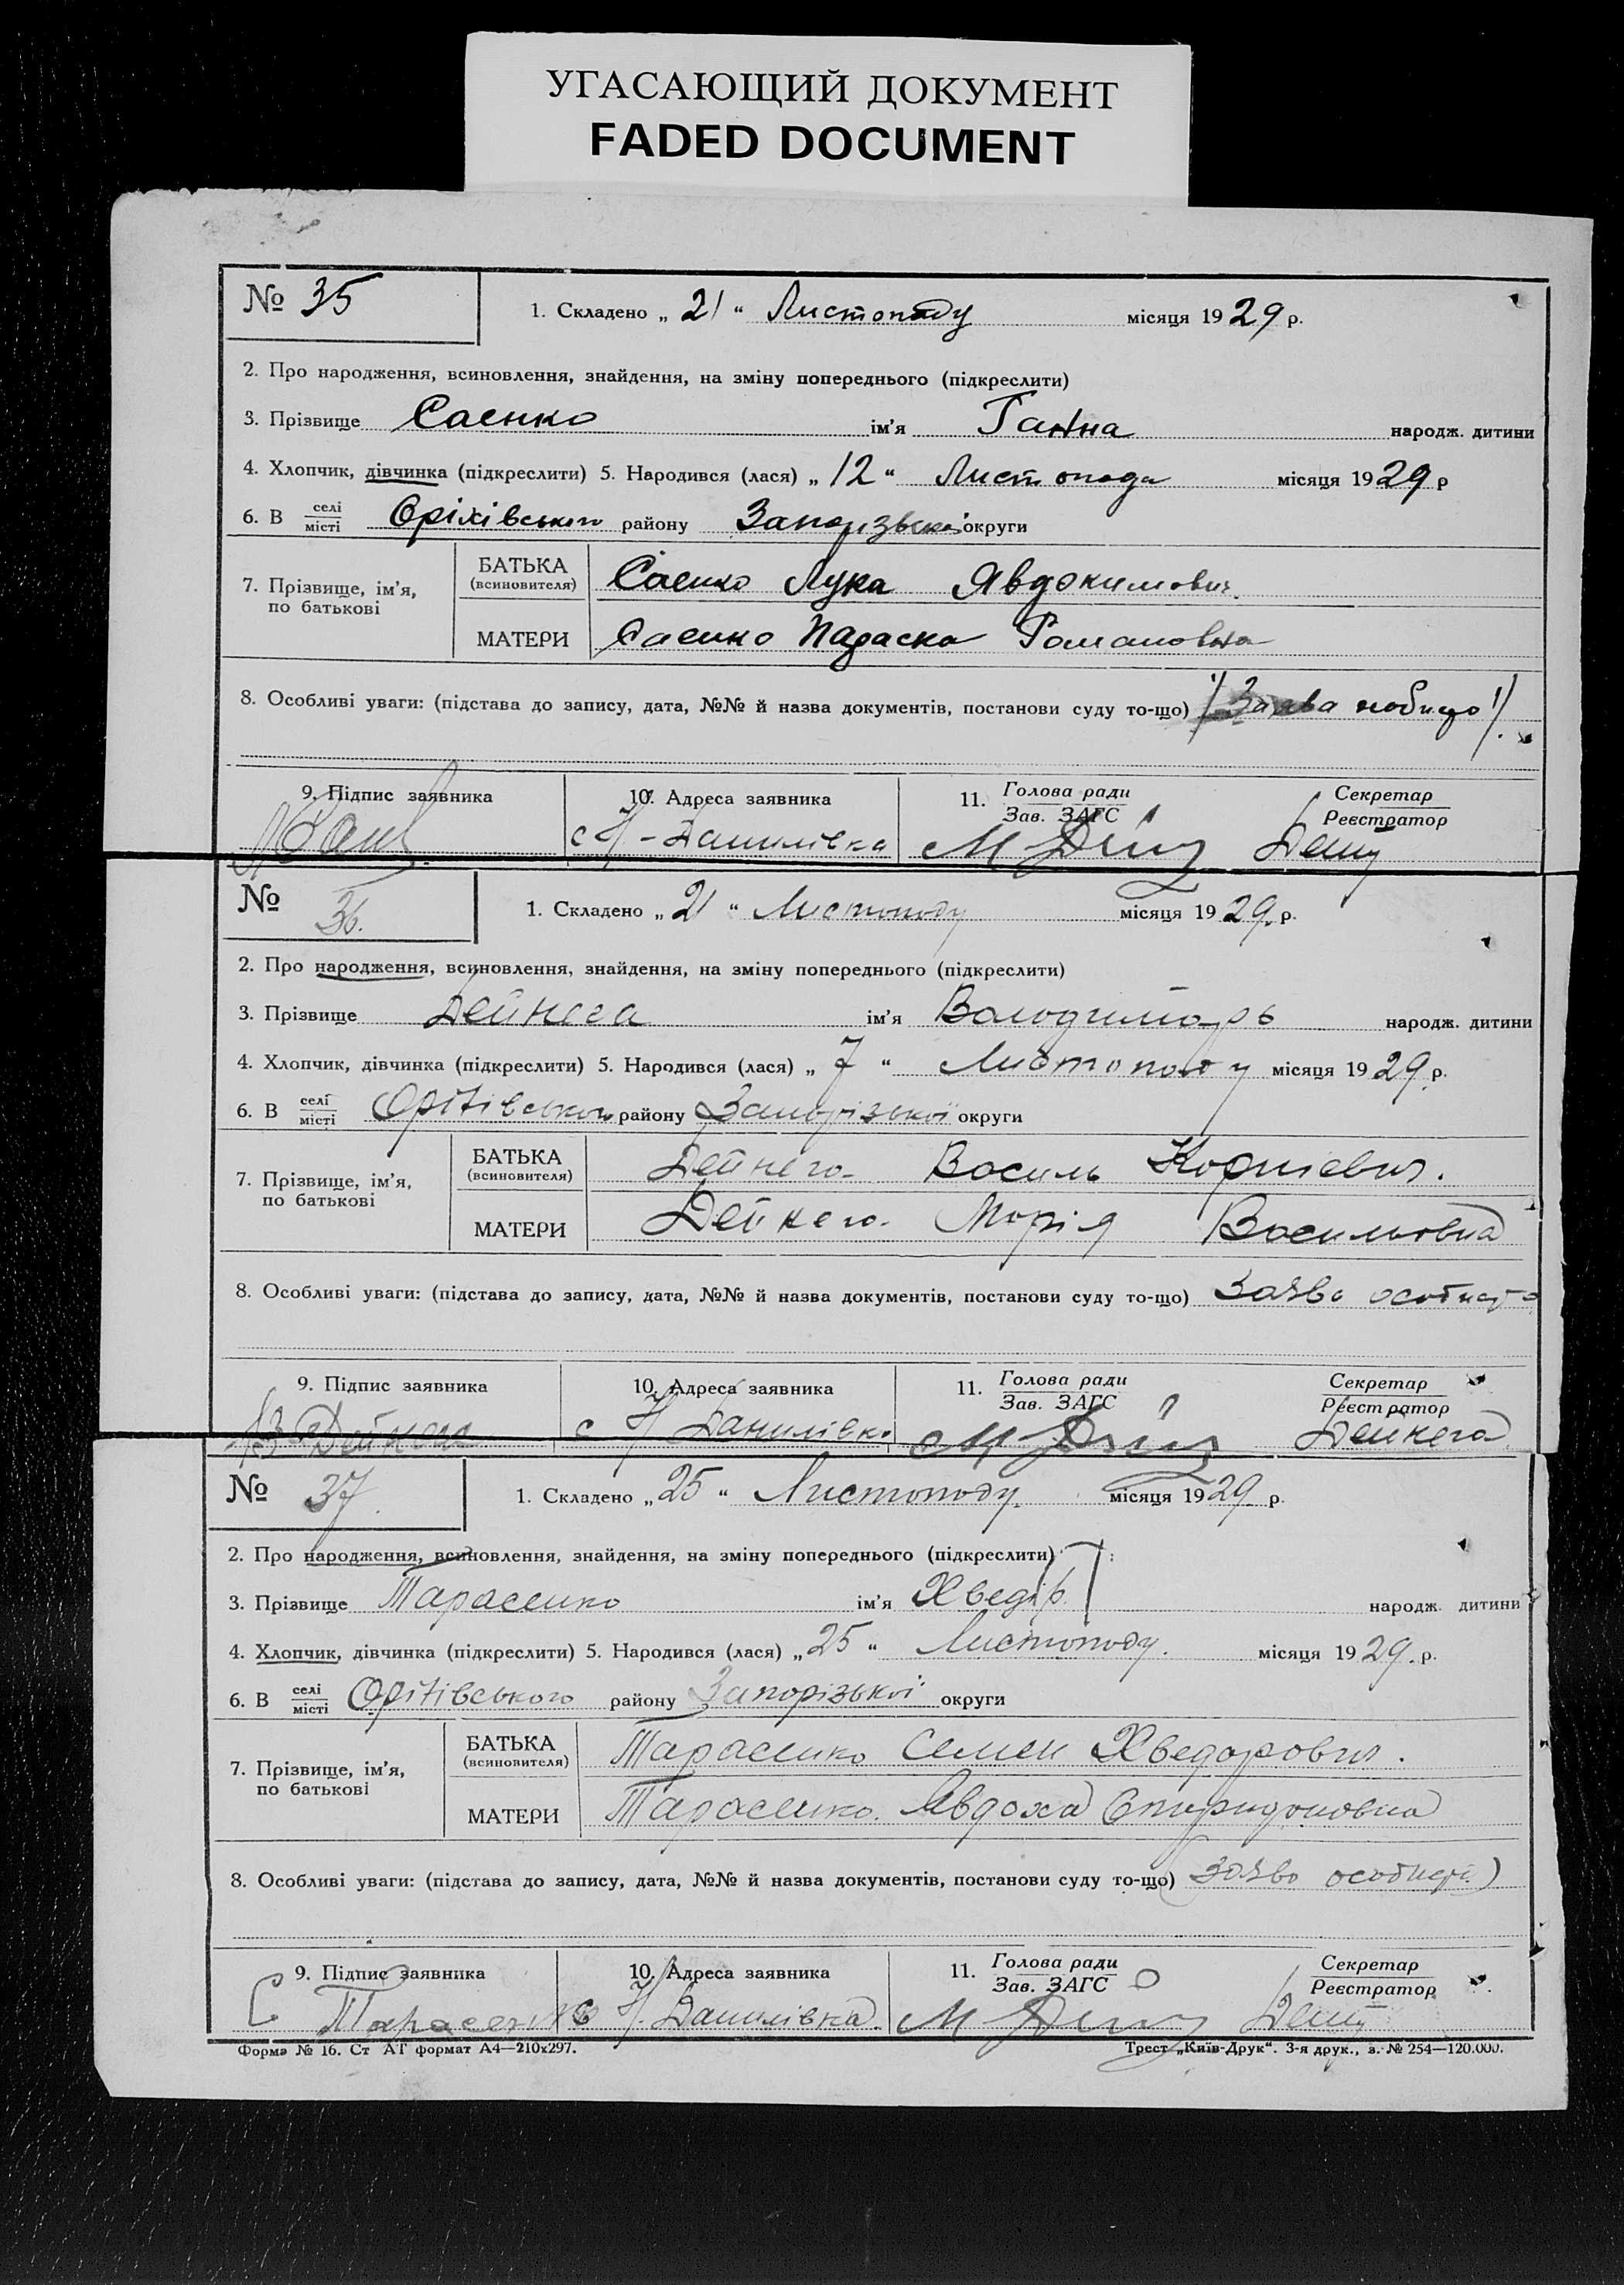 УГАСАЮЩИЙ ДОКУМЕНТ
FADED DOCUMENT
№ 35
1. Складено „ 21 “ Листопаду місяця 1929 р.
2. Про народження, всиновлення, знайдення, на зміну попереднього (підкреслити)
3. Прізвище Саенко ім’я Ганна народж. дитини
4. Хлопчик, дівчинка (підкреслити) 5. Народився (лася) „ 12 “ Листопада місяця 1929 р
6. В селі місті Оріхівського району Запорізької округи
7. Прізвище, ім’я, по батькові
БАТЬКА (всиновителя) Саенко Лука Явдокимович.
МАТЕРИ Саенко Параска Романовна
8. Особливі уваги: (підстава до запису, дата, №№ й назва документів, постанови суду то-що) Заява
9. Підпис заявника 10. Адреса заявника 11. Голова ради Зав. ЗАГС Секретар Реєстратор
с Н-Данилівка
№ 36.
1. Складено „ 21 “ Листопаду місяця 1929. р.
2. Про народження, всиновлення, знайдення, на зміну попереднього (підкреслити)
3. Прізвище Дейнега ім’я Володимирь народж. дитини
4. Хлопчик, дівчинка (підкреслити) 5. Народився (лася) „ 7 “ Листопаду місяця 1929. р.
6. В селі місті Оріхівського району Запорізької округи
7. Прізвище, ім’я, по батькові
БАТЬКА (всиновителя) Дейнега Василь Корнієвич.
МАТЕРИ Дейнега Марія Васильовна
8. Особливі уваги: (підстава до запису, дата, №№ й назва документів, постанови суду то-що) Заява особиста
9. Підпис заявника 10. Адреса заявника 11. Голова ради Зав. ЗАГС Секретар Реєстратор
В Дейнега с Н Данилівка Дейнега
№ 37.
1. Складено „ 25 “ Листопаду. місяця 1929 р.
2. Про народження, всиновлення, знайдення, на зміну попереднього (підкреслити)
3. Прізвище Тарасенко ім’я Хведір народж. дитини
4. Хлопчик, дівчинка (підкреслити) 5. Народився (лася) „ 25 “ Листопаду. місяця 1929. р.
6. В селі місті Оріхівського району Запорізької округи
7. Прізвище, ім’я, по батькові
БАТЬКА (всиновителя) Тарасенко Семен Хведорович.
МАТЕРИ Тарасенко. Явдоха Спиридоновна
8. Особливі уваги: (підстава до запису, дата, №№ й назва документів, постанови суду то-що) (заява особиста)
9. Підпис заявника 10. Адреса заявника 11. Голова ради Зав. ЗАГС Секретар Реєстратор
С Тарасенко с Н-Данилівка
Форма № 16. Ст АТ формат А4—210х297. Трест „Київ-Друк“. 3-я друк., з. № 254—120.000.